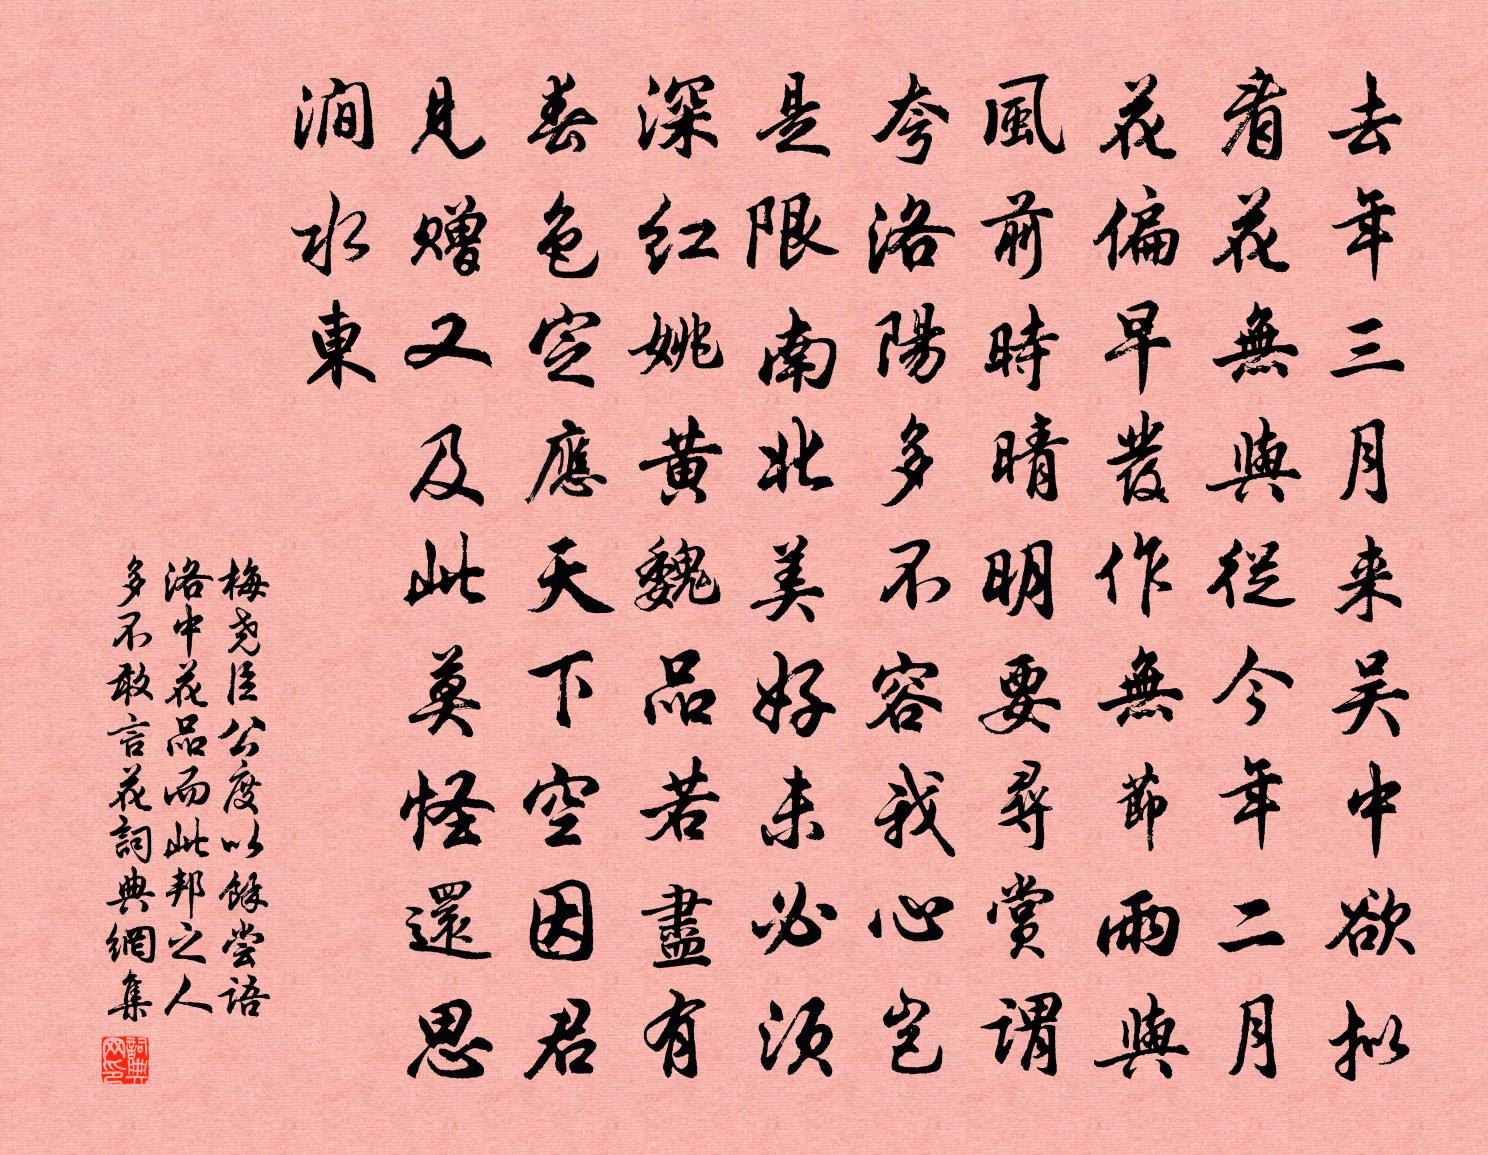 去年三月来吴中欲拟
看花無與從今年二月
花偏早發作無節雨與
風前時晴明要尋賞謂
夸洛陽多不容我心豈
是限南北美好未必须
深红姚黄魏品若盡有
春色定應天下空因君
見赠又及此莫怪還思
澗水東
梅尧臣公度以餘尝语
洛中花品而此邦之人
多不敢言花詞典網集
詞典网印